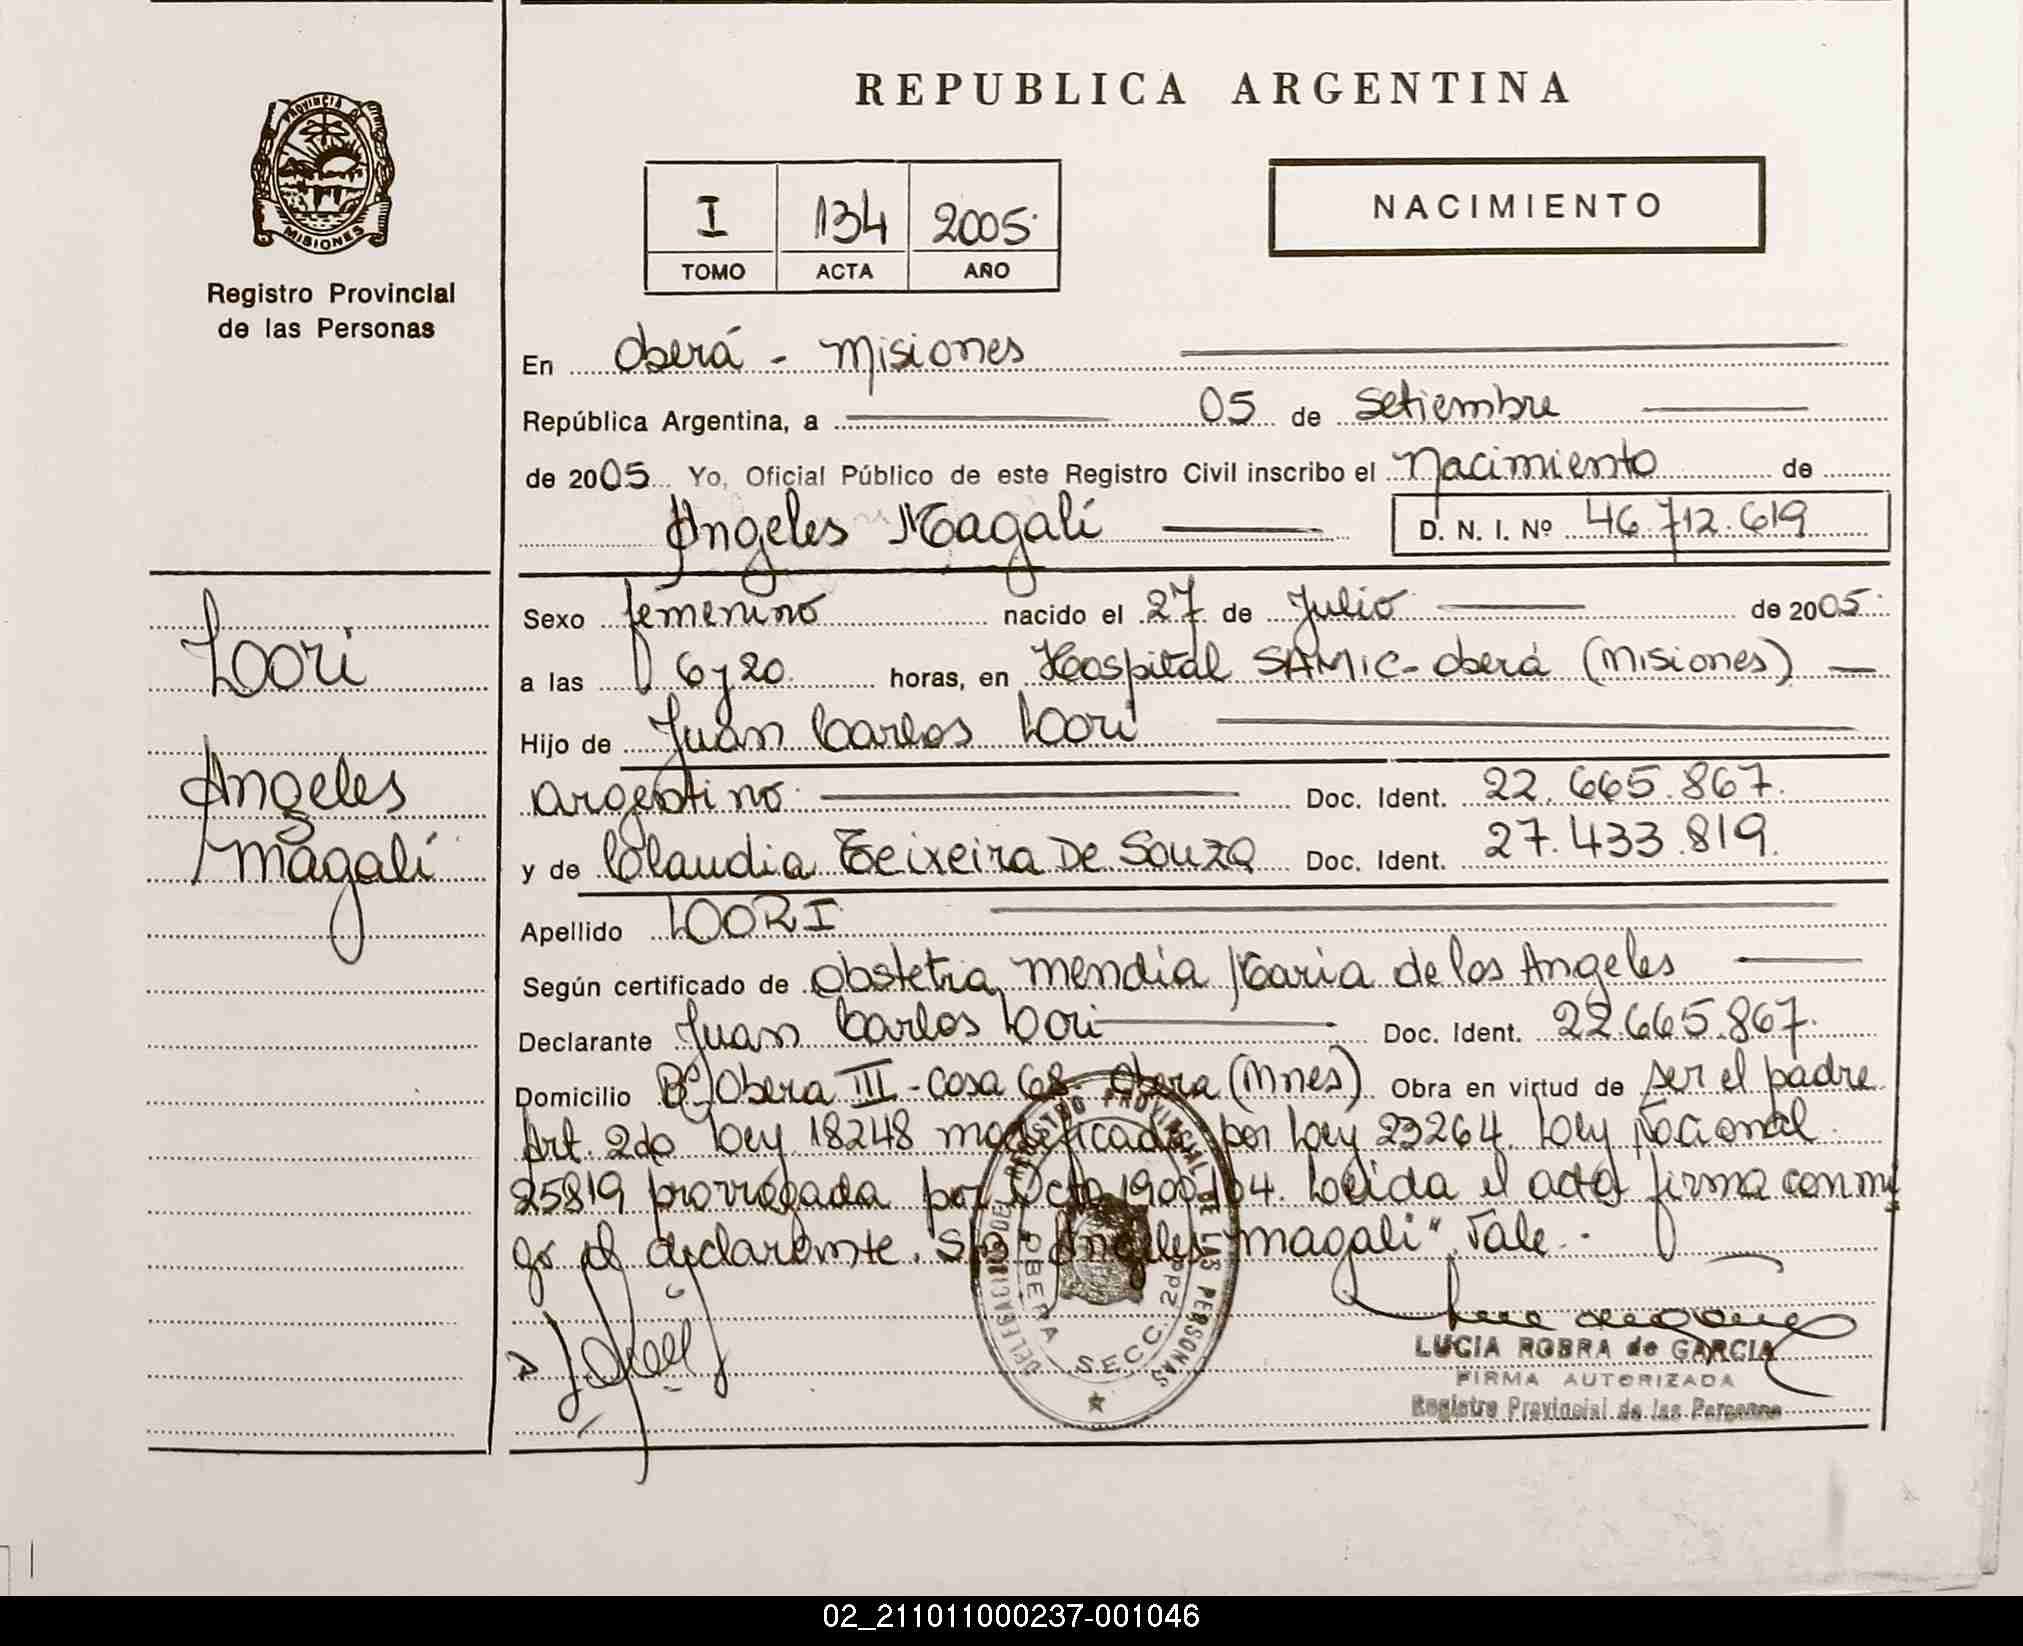 REPUBLICA ARGENTINA
PROVINCIA DE MISIONES
Registro Provincial
de las Personas
I 134 2005
TOMO ACTA AÑO
NACIMIENTO
En Oberá - Misiones
República Argentina, a 05 de Setiembre
de 2005 Yo, Oficial Público de este Registro Civil inscribo el Nacimiento de
Angeles Magalí D. N. I. Nº 46.712.619
Loori
Angeles
Magalí
Sexo femenino nacido el 27 de Julio de 2005
a las 6 y 20 horas, en Hospital SAMIC - Oberá (Misiones)
Hijo de Juan Carlos Loori
argentino Doc. Ident. 22.665.867
y de Claudia Teixeira De Souza Doc. Ident. 27.433.819
Apellido LOORI
Según certificado de Obstetra Mendia Maria de los Angeles
Declarante Juan Carlos Loori Doc. Ident. 22.665.867
Domicilio Bº Obera III - Casa 68 - Obera (Mnes) Obra en virtud de ser el padre
Art. 2do Ley 18248 modificada por Ley 23264. Ley Nacional
25819 prorrogada por Dcto 1900/04. Leida el acta firma conmi
go el declarante. S/b "Angeles Magali" Vale.-
DELEGACION DE REGISTRO PROVINCIAL DE LAS PERSONAS
OBERA SECC. 2da
LUCIA ROBRA de GARCIA
FIRMA AUTORIZADA
Registro Provincial de las Personas
02_211011000237-001046